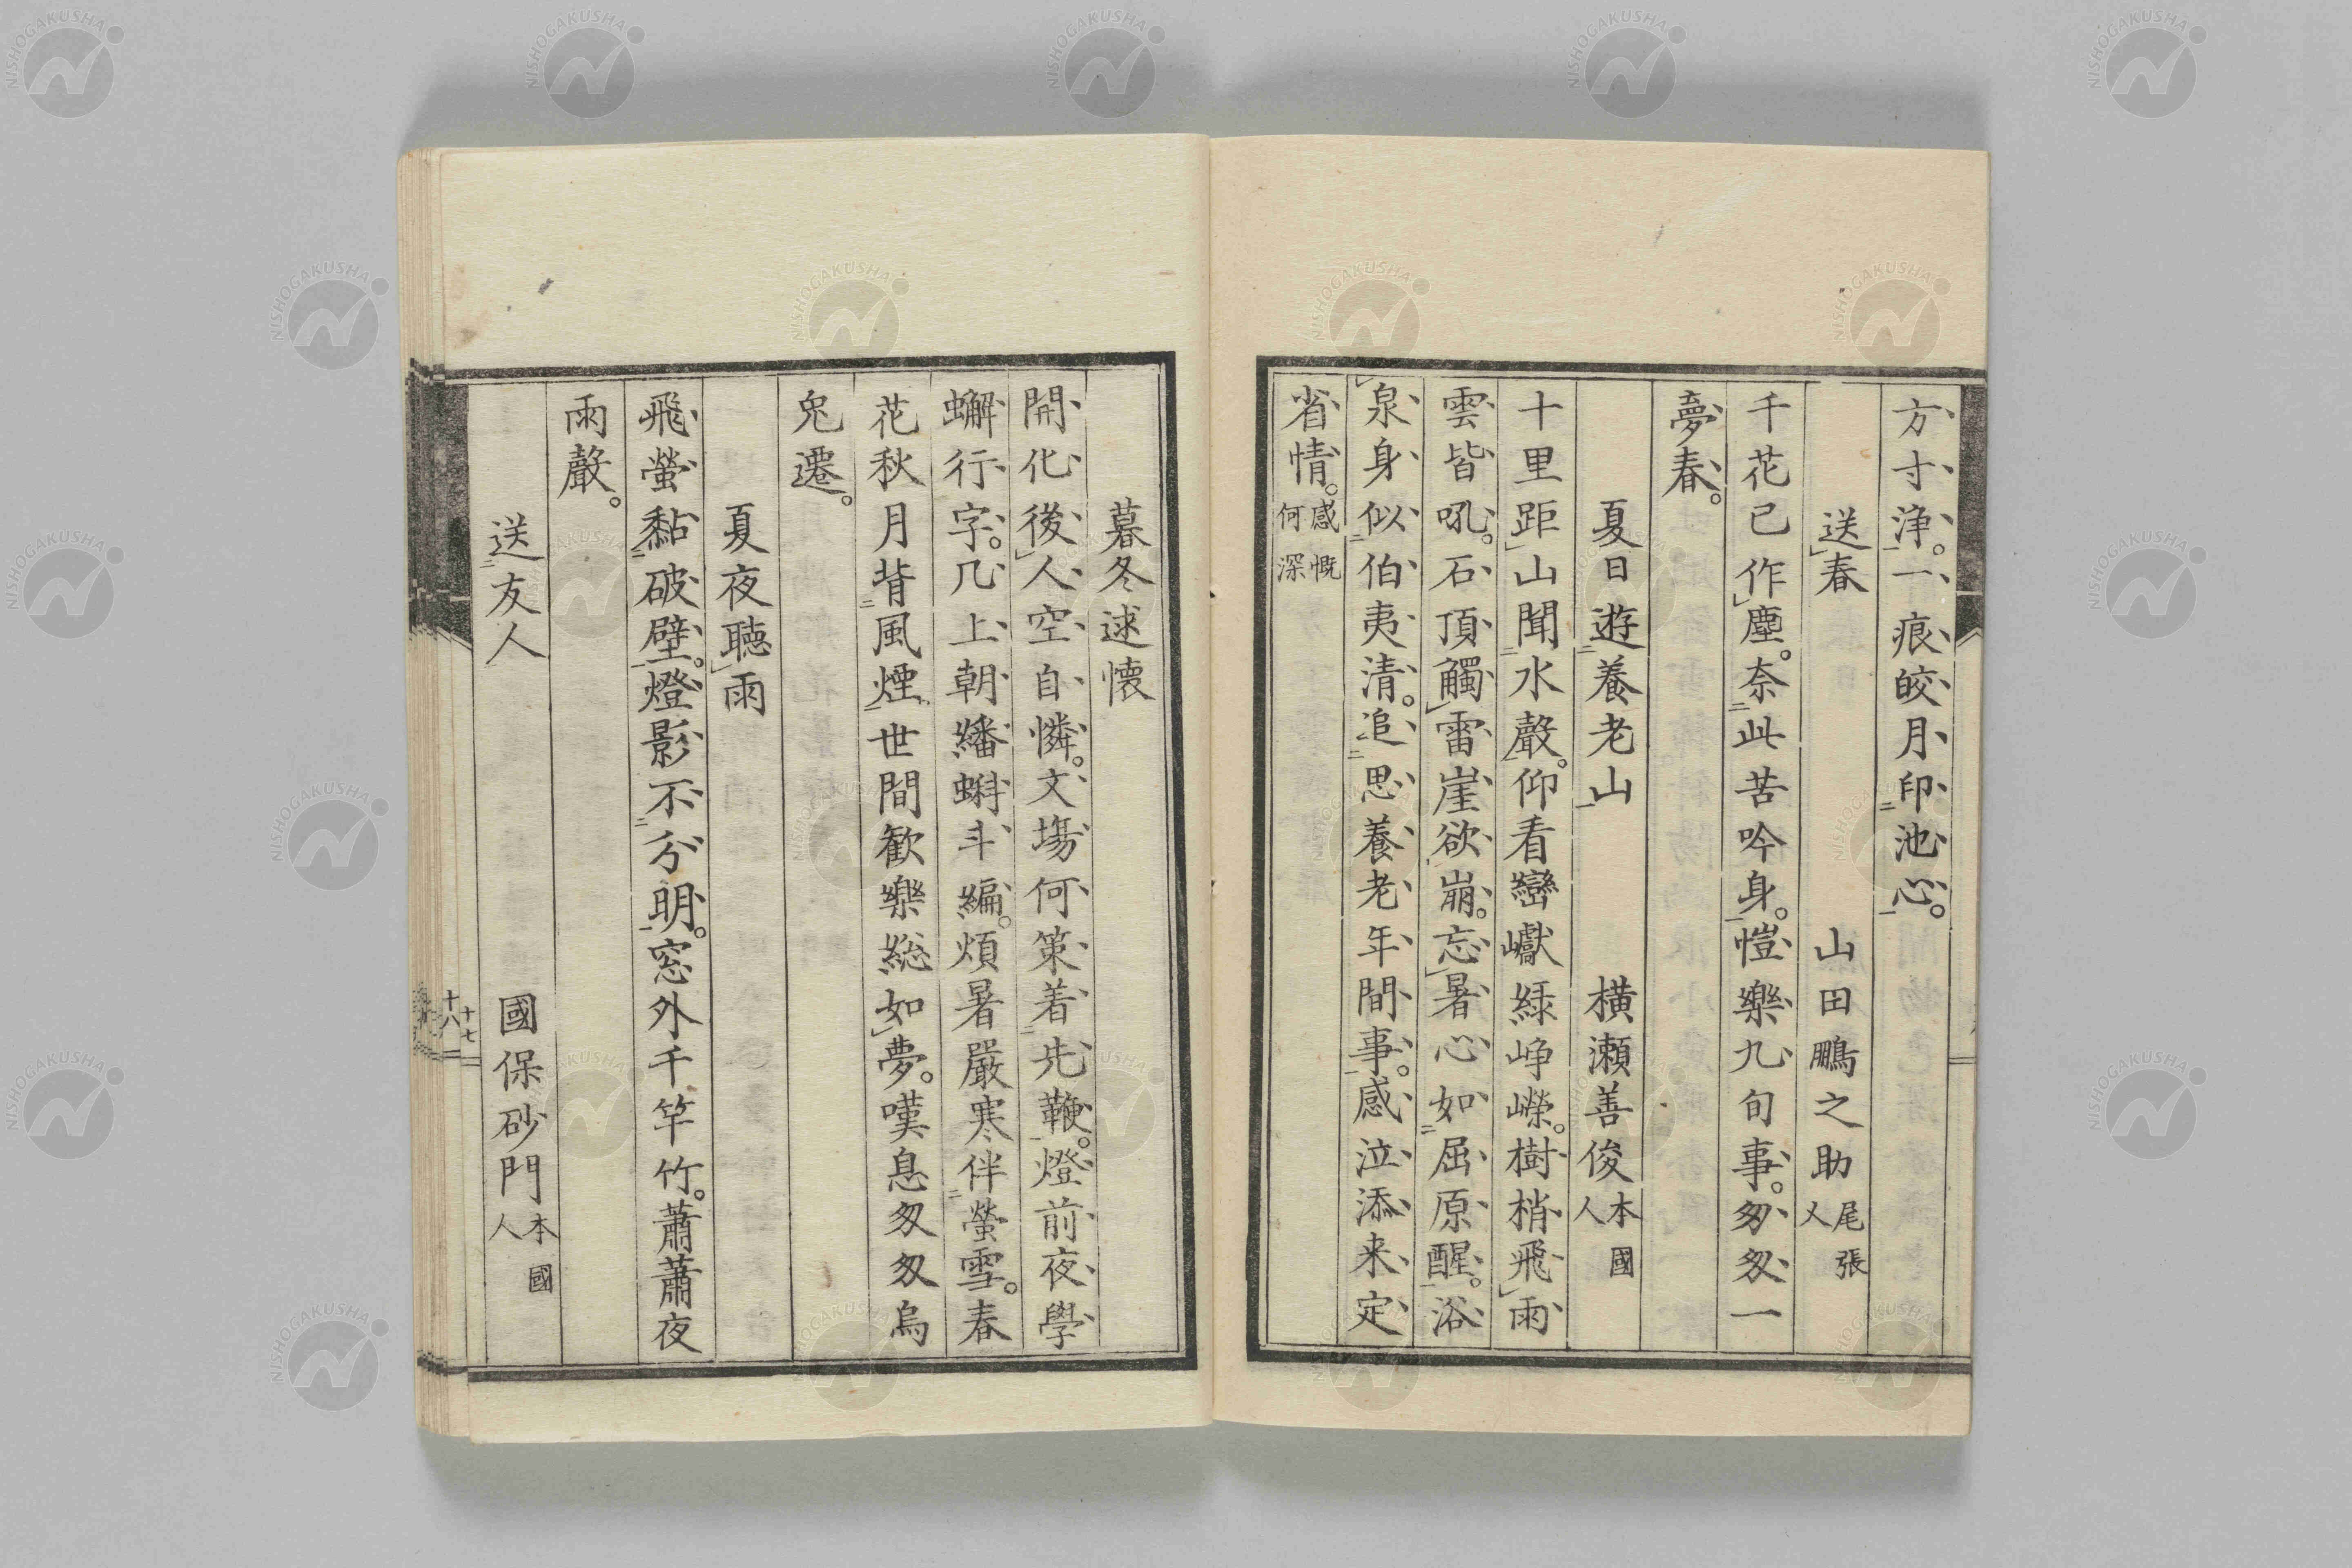 方寸浄。一痕皎月印池心。
送春 山田鵬之助 尾張人
千花已作塵。奈此苦吟身。愷樂九旬事。匆匆一
夢春。
夏日遊養老山 横瀬善俊 本國人
十里距山聞水聲。仰看巒巘緑崢嶸。樹梢飛雨
雲皆吼。石頂觸雷崖欲崩。忘暑心如屈原醒。浴
泉身似伯夷清。追思養老年間事。感泣添来定
省情。感慨何深
暮冬逑懐
開化後人空自憐。文塲何策着先鞭。燈前夜學
蠏行字。几上朝繙蝌斗編。煩暑嚴寒伴螢雪。春
花秋月背風煙。世間歓樂総如夢。嘆息匆匆烏
兎遷。
夏夜聴雨
飛螢黏破壁。燈影不分明。窓外千竿竹。蕭蕭夜
雨聲。
送友人 國保砂門 本國人
十七
十八
NISHOGAKUSHA